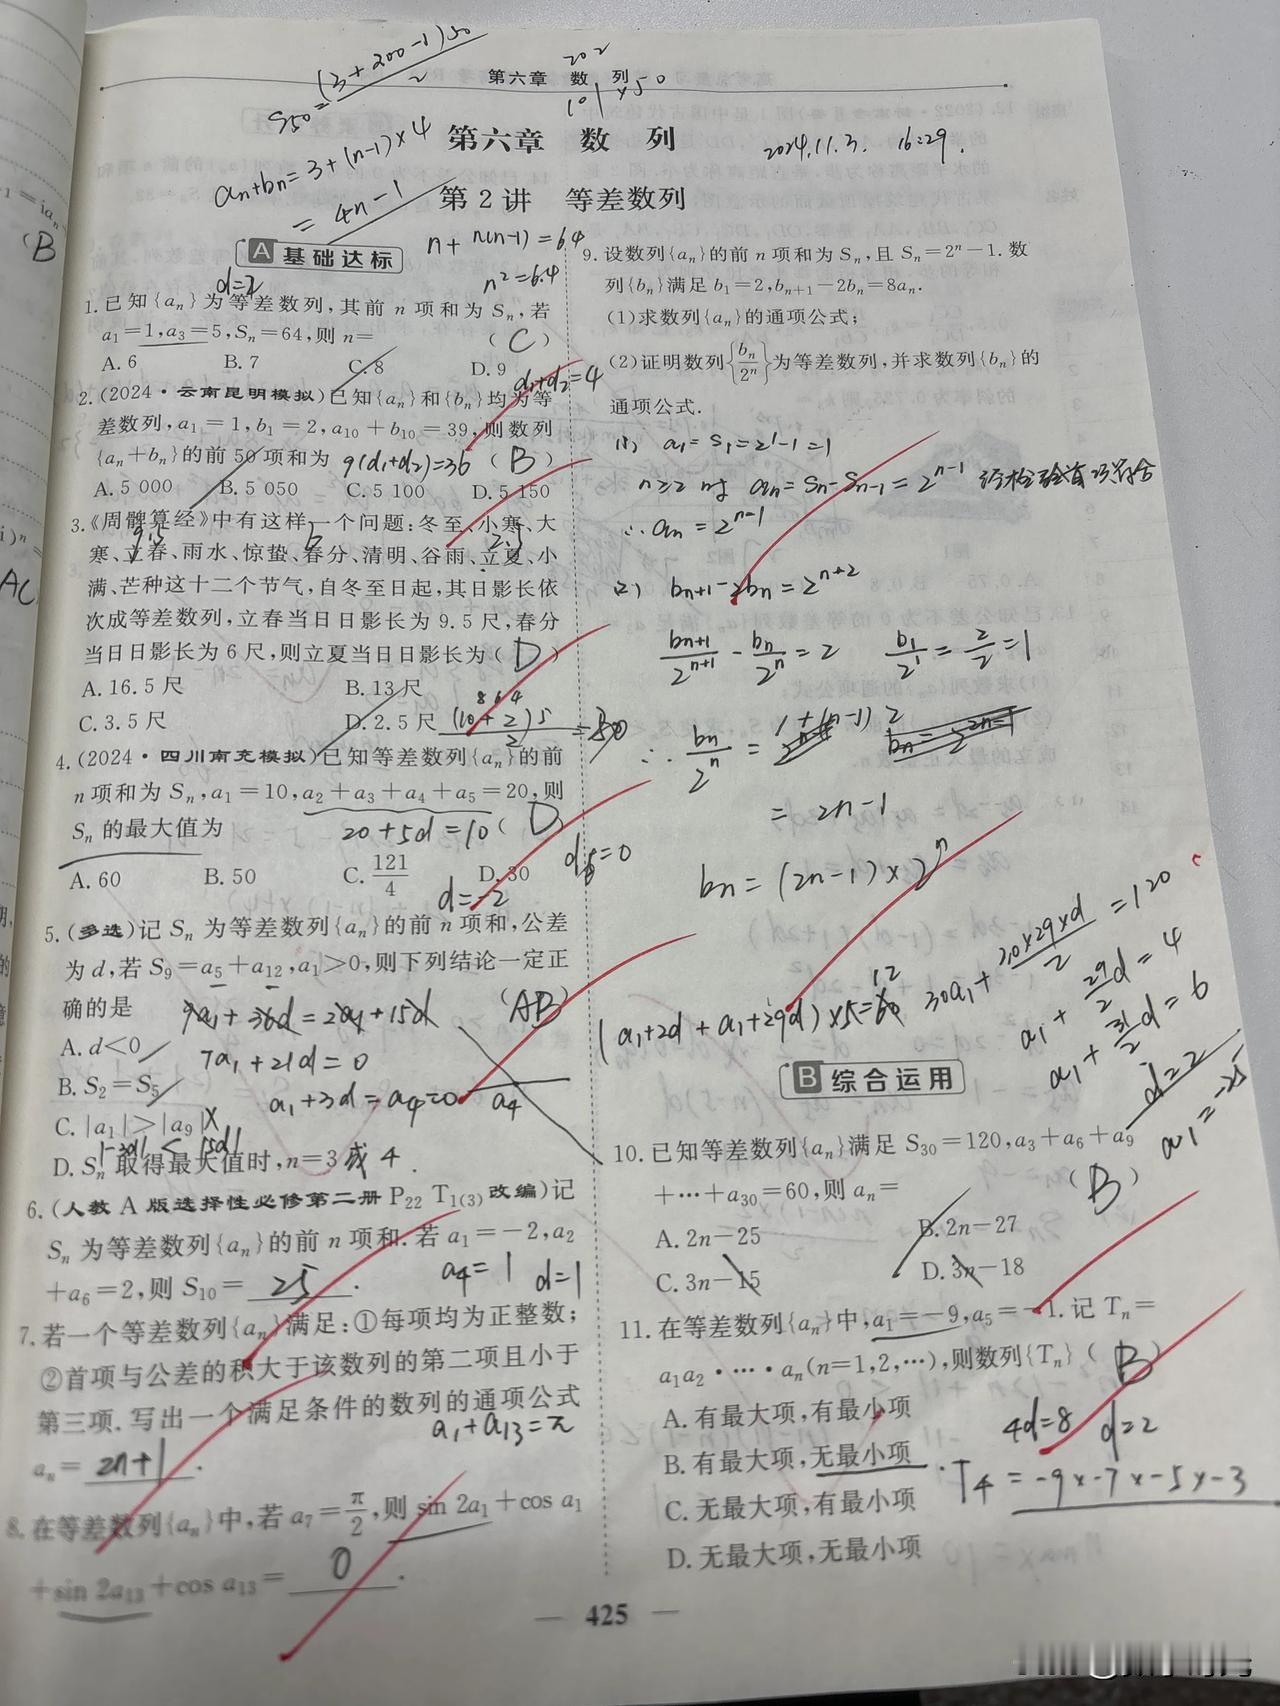 第六章 数 列
S50=(3+200-1)50/2
202
101×50
第六章 数 列
2024.11.3. 16:29.
an+bn=3+(n-1)×4
=4n-1
第2讲 等差数列
A 基础达标
n+n(n-1)=64
n²=64
d=2
1.已知{an}为等差数列,其前 n 项和为 Sn,若
a1=1,a3=5,Sn=64,则 n= (C)
A.6 B.7 C.8 D.9
d1+d2=4
2.(2024·云南昆明模拟)已知{an}和{bn}均为等
差数列,a1=1,b1=2,a10+b10=39,则数列
{an+bn}的前 50 项和为 9(d1+d2)=36 (B)
A.5 000 B.5 050 C.5 100 D.5 150
3.《周髀算经》中有这样一个问题:冬至、小寒、大
9.5 6 2.5
寒、立春、雨水、惊蛰、春分、清明、谷雨、立夏、小
满、芒种这十二个节气,自冬至日起,其日影长依
次成等差数列,立春当日日影长为 9.5 尺,春分
当日日影长为 6 尺,则立夏当日日影长为(D)
A.16.5 尺 B.13 尺
8 6 4
C.3.5 尺 D.2.5 尺 (10+2)5/2=30
4.(2024·四川南充模拟)已知等差数列{an}的前
n 项和为 Sn,a1=10,a2+a3+a4+a5=20,则
Sn 的最大值为 20+5d=10 (D)
A.60 B.50 C.121/4 D.30
d=-2
5.(多选)记 Sn 为等差数列{an}的前 n 项和,公差
为 d,若 S9=a5+a12,a1>0,则下列结论一定正
确的是 9a1+36d=2a1+15d (AB)
A.d<0
7a1+21d=0
B.S2=S5
a1+3d=a4=0 a4
C.|a1|>|a9| ×
|-3d| < |5d|
D.Sn 取得最大值时,n=3 或 4.
6.(人教 A 版选择性必修第二册 P22 T1(3)改编)记
Sn 为等差数列{an}的前 n 项和.若 a1=-2,a2
+a6=2,则 S10= 25 . a4=1 d=1
7.若一个等差数列{an}满足:①每项均为正整数;
②首项与公差的积大于该数列的第二项且小于
第三项.写出一个满足条件的数列的通项公式
an= 2n+1 . a1+a13=π
8.在等差数列{an}中,若 a7=π/2,则 sin 2a1+cos a1
+sin 2a13+cos a13= 0 .
9.设数列{an}的前 n 项和为 Sn,且 Sn=2ⁿ-1.数
列{bn}满足 b1=2,bn+1-2bn=8an.
(1)求数列{an}的通项公式;
(2)证明数列{bn/2ⁿ}为等差数列,并求数列{bn}的
通项公式.
(1) a1=S1=2¹-1=1
n≥2时 an=Sn-Sn-1=2ⁿ⁻¹ 经检验首项符合
∴an=2ⁿ⁻¹
(2) bn+1-2bn=2ⁿ⁺²
bn+1/2ⁿ⁺¹-bn/2ⁿ=2 b1/2¹=2/2=1
∴bn/2ⁿ=1+(n-1)2
=2n-1
bn=(2n-1)×2ⁿ
(a1+2d+a1+29d)×5=60 12
30a1+30×29×d/2=120
a1+29/2d=4
a1+31/2d=6
d=2
a1=-25
B 综合运用
10.已知等差数列{an}满足 S30=120,a3+a6+a9
+…+a30=60,则 an= (B)
A.2n-25 B.2n-27
C.3n-15 D.3n-18
11.在等差数列{an}中,a1=-9,a5=-1.记 Tn=
a1a2·…·an(n=1,2,…),则数列{Tn} (B)
A.有最大项,有最小项
4d=8 d=2
B.有最大项,无最小项
T4=-9×-7×-5×-3
C.无最大项,有最小项
D.无最大项,无最小项
— 425 —